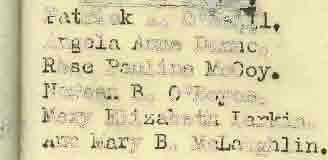 Patrick O'Neill.
Angela Anne
Rose Pauline McCoy.
Noreen B.
Mary Elizabeth Larkin.
Ann Mary B. McLaughlin.